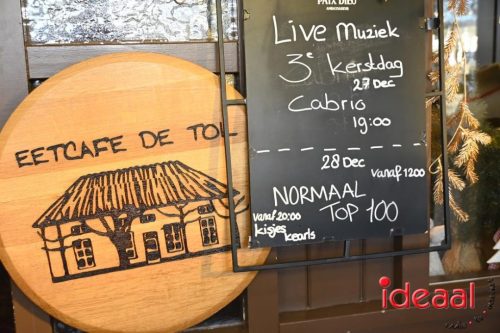 PAIX DIEU
Live Muziek
3e Kerstdag
27 Dec
Cabrio
19:00
28 Dec
vanaf 1200
NORMAAL
TOP 100
vanaf 20:00
kisjes
kearls
EETCAFE DE TOL
ideaal